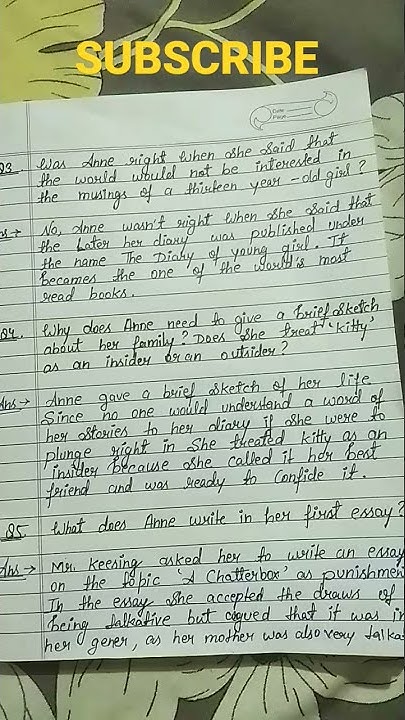 SUBSCRIBE
Date
Page
Q3 Was Anne right when she said that
the world would not be interested in
the musings of a thirteen year-old girl?
Ans → No, Anne wasn't right when she said that
the Later her diary was published under
the name The Diary of young girl. It
becomes the one of the world's most
read books.
Q4. Why does Anne need to give a brief sketch
about her family? Does she treat 'Kitty'
as an insider or an outsider?
Ans → Anne gave a brief sketch of her life
Since no one would understand a word of
her stories to her diary if she were to
plunge right in She treated kitty as an
insider because she called it her best
friend and was ready to Confide it.
Q5 What does Anne write in her first essay?
Ans → Mr. Keesing asked her to write an essay
on the topic 'A Chatterbox' as punishmen
In the essay she accepted the draws of
being talkative but that it was in
her gener, as her mother was also very talka